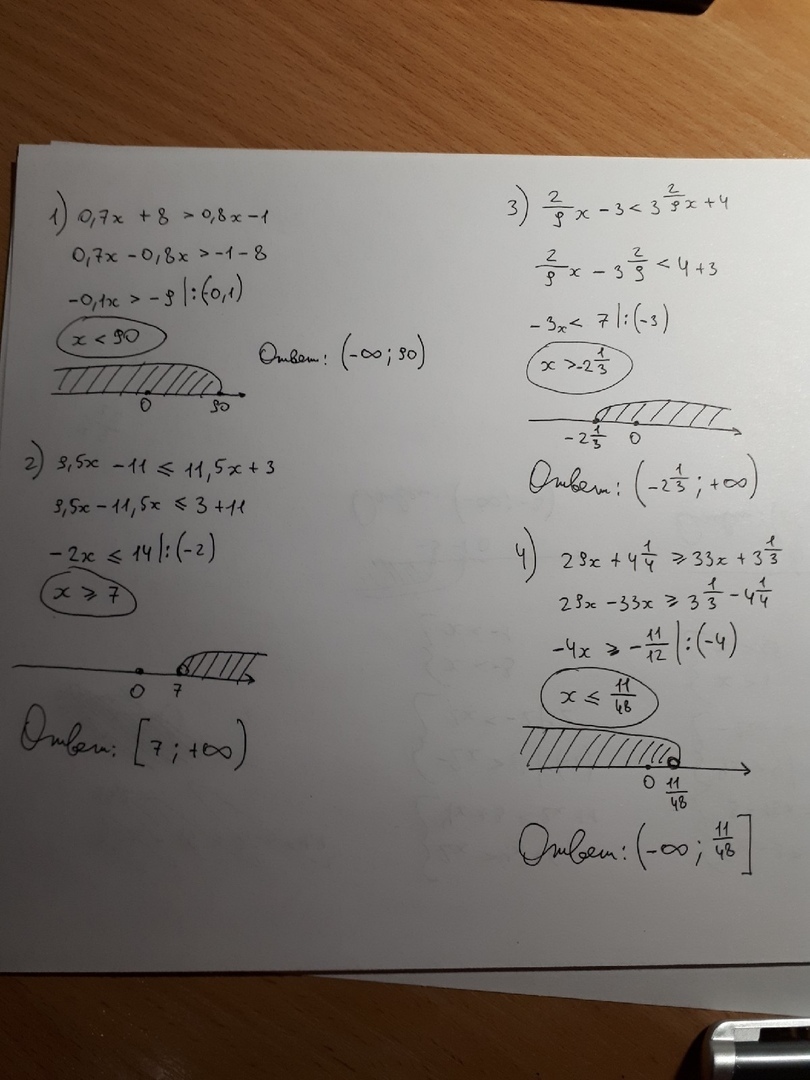 1) 0,7x + 8 > 0,8x - 1
0,7x - 0,8x > -1 - 8
-0,1x > -9 | : (-0,1)
x < 90
0 90
Ответ: (-∞; 90)
2) 9,5x - 11 ⩽ 11,5x + 3
9,5x - 11,5x ⩽ 3 + 11
-2x ⩽ 14 | : (-2)
x ⩾ 7
0 7
Ответ: [7; +∞)
3) 2/9 x - 3 < 3 2/9 x + 4
2/9 x - 3 2/9 < 4 + 3
-3x < 7 | : (-3)
x > -2 1/3
-2 1/3 0
Ответ: (-2 1/3; +∞)
4) 29x + 4 1/4 ⩾ 33x + 3 1/3
29x - 33x ⩾ 3 1/3 - 4 1/4
-4x ⩾ -11/12 | : (-4)
x ⩽ 11/48
0 11/48
Ответ: (-∞; 11/48]